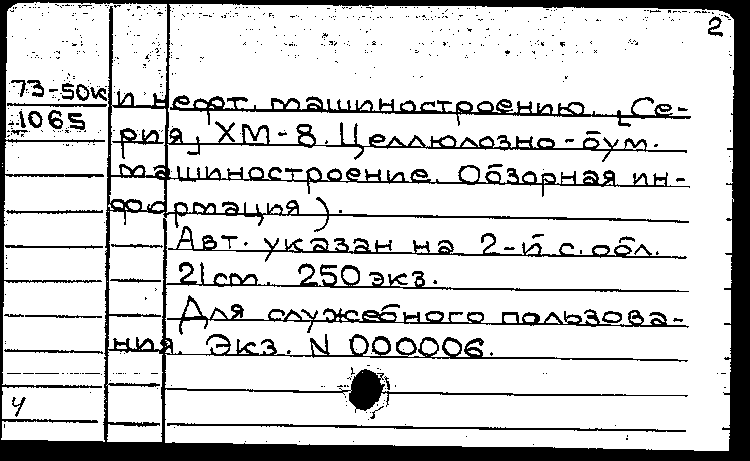 2
73-50к
1065
и нефт. машиностроению. [Се-
рия] ХМ-8. Целлюлозно-бум.
машиностроение. Обзорная ин-
формация).
Авт. указан на 2-й с. обл.
21 cm. 250 экз.
Для служебного пользова-
ния. Экз. N 000006.
ч